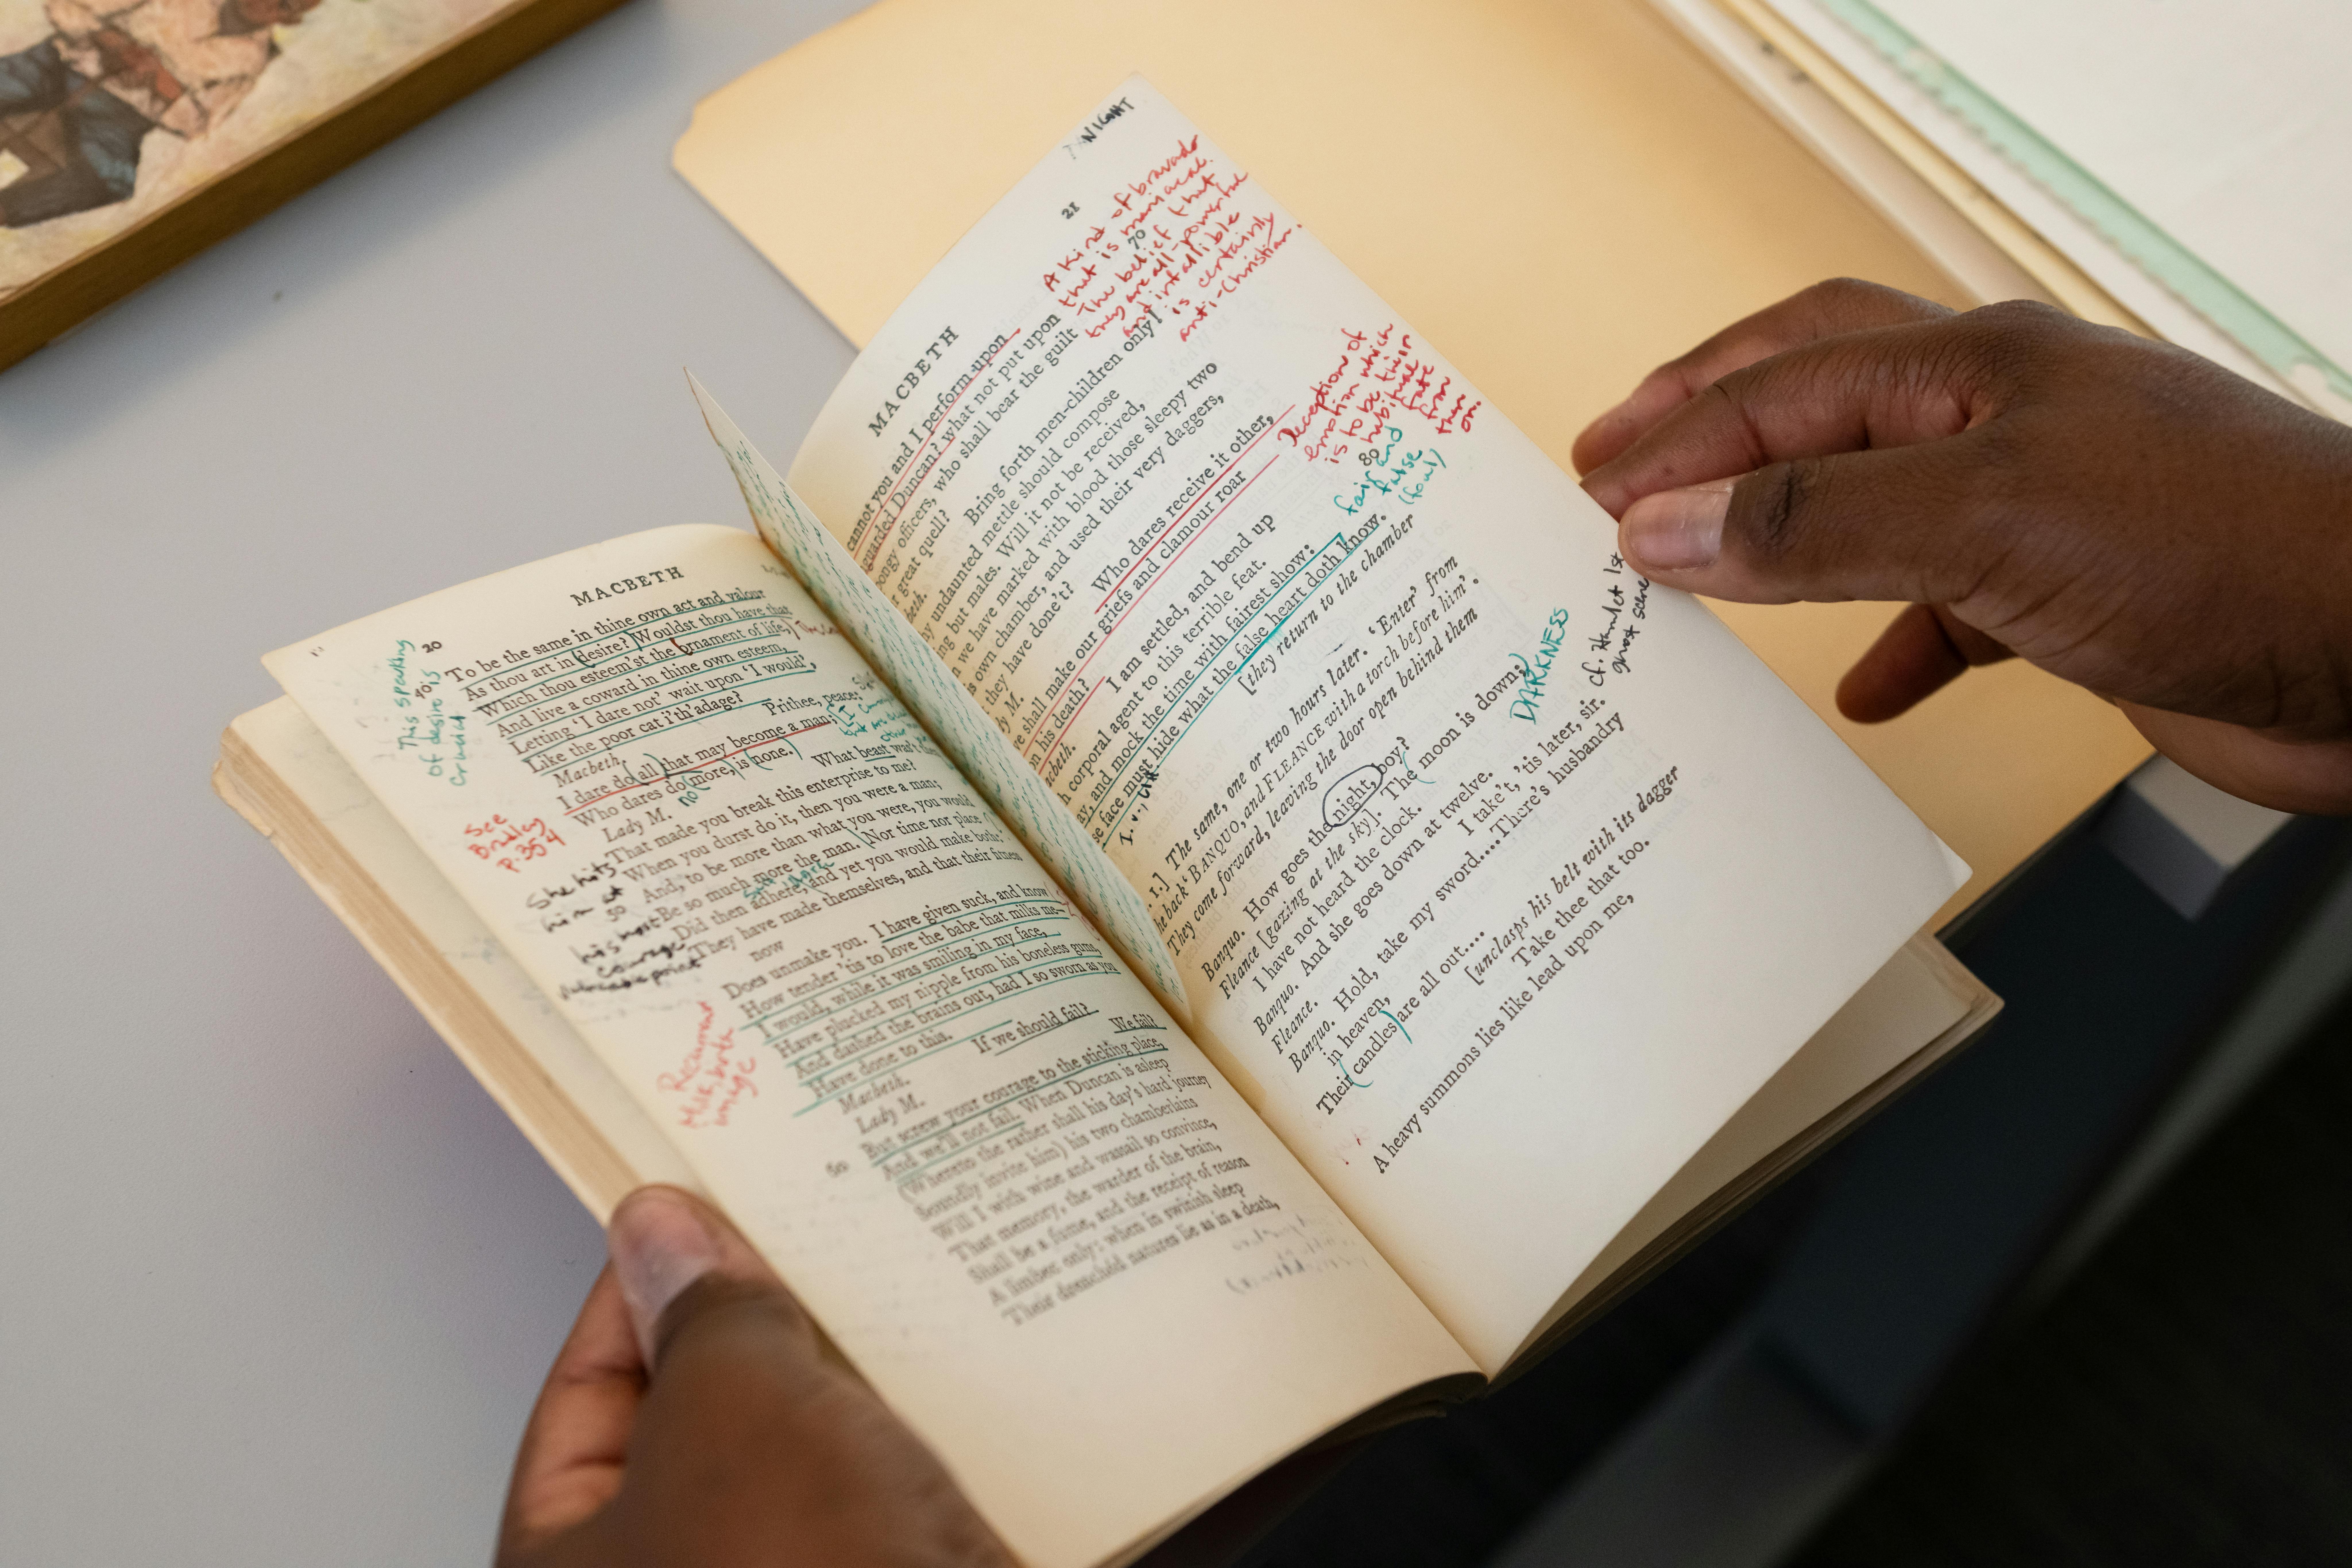 MACBETH
20
To be the same in thine own act and valour
As thou art in desire? Wouldst thou have that
40 Which thou esteem'st the ornament of life,
And live a coward in thine own esteem,
Letting 'I dare not' wait upon 'I would',
Like the poor cat i'th'adage?
Macbeth. Prithee, peace:
I dare do all that may become a man;
Who dares do more, is none.
no
Lady M. What beast was't then
That made you break this enterprise to me?
When you durst do it, then you were a man;
50 And, to be more than what you were, you would
Be so much more the man. Nor time nor place
Did then adhere, and yet you would make both:
They have made themselves, and that their fitness
now
Does unmake you. I have given suck, and know
How tender 'tis to love the babe that milks me—
I would, while it was smiling in my face,
Have plucked my nipple from his boneless gums,
And dashed the brains out, had I so sworn as you
Have done to this.
Macbeth. If we should fail?
Lady M. We fail?
60 But screw your courage to the sticking place,
And we'll not fail. When Duncan is asleep
(Whereto the rather shall his day's hard journey
Soundly invite him) his two chamberlains
Will I with wine and wassail so convince,
That memory, the warder of the brain,
Shall be a fume, and the receipt of reason
A limbec only: when in swinish sleep
Their drenched natures lie as in a death,
This speaking
of desire is
crucial
See
Bradley
p. 354
She hits
him at
his most
courage
vulnerable point
agree
Recurrent
Milk, birth
image
NIGHT
MACBETH
21
cannot you and I perform upon
guarded Duncan? what not put upon
70
ongy officers, who shall bear the guilt
great quell?
Bring forth men-children only!
undaunted mettle should compose
ng but males. Will it not be received,
n we have marked with blood those sleepy two
is own chamber, and used their very daggers,
they have done't?
dy M. Who dares receive it other,
e shall make our griefs and clamour roar
on his death?
acbeth. I am settled, and bend up
80
h corporal agent to this terrible feat.
ay, and mock the time with fairest show:
se face must hide what the false heart doth know.
[they return to the chamber
1.] The same, one or two hours later. 'Enter' from
he back 'BANQUO, and FLEANCE with a torch before him'.
They come forward, leaving the door open behind them
Banquo. How goes the night, boy?
Fleance [gazing at the sky]. The moon is down;
I have not heard the clock.
Banquo. And she goes down at twelve.
Fleance. I take't, 'tis later, sir.
Banquo. Hold, take my sword.... There's husbandry
in heaven,
Their candles are all out....
[unclasps his belt with its dagger
Take thee that too.
A heavy summons lies like lead upon me,
A kind of bravado
that is maniacal.
The belief that
they are all-powerful
and infallible
is certainly
anti-Christian.
Deception of
emotion which
is to be their
habitual
fate
from
then
on.
fair and
false
(foul)
DARKNESS
cf. Hamlet 1st
ghost scene